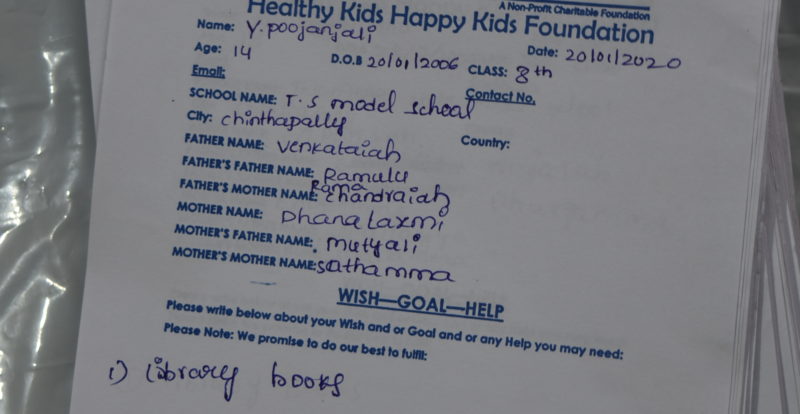 A Non-Profit Charitable Foundation
Healthy Kids Happy Kids Foundation
Name: Y. poojanjali
Date: 20/01/2020
Age: 14 D.O.B 20/01/2006 CLASS: 8th
Email: Contact No.
SCHOOL NAME: T.S model school
City: chinthapally Country:
FATHER NAME: venkataiah
FATHER'S FATHER NAME: Ramulu
FATHER'S MOTHER NAME: Rama chandraiah
MOTHER NAME: Dhanalaxmi
MOTHER'S FATHER NAME: mutyali
MOTHER'S MOTHER NAME: sathamma
WISH—GOAL—HELP
Please write below about your Wish and or Goal and or any Help you may need:
Please Note: We promise to do our best to fulfil:
1) library books